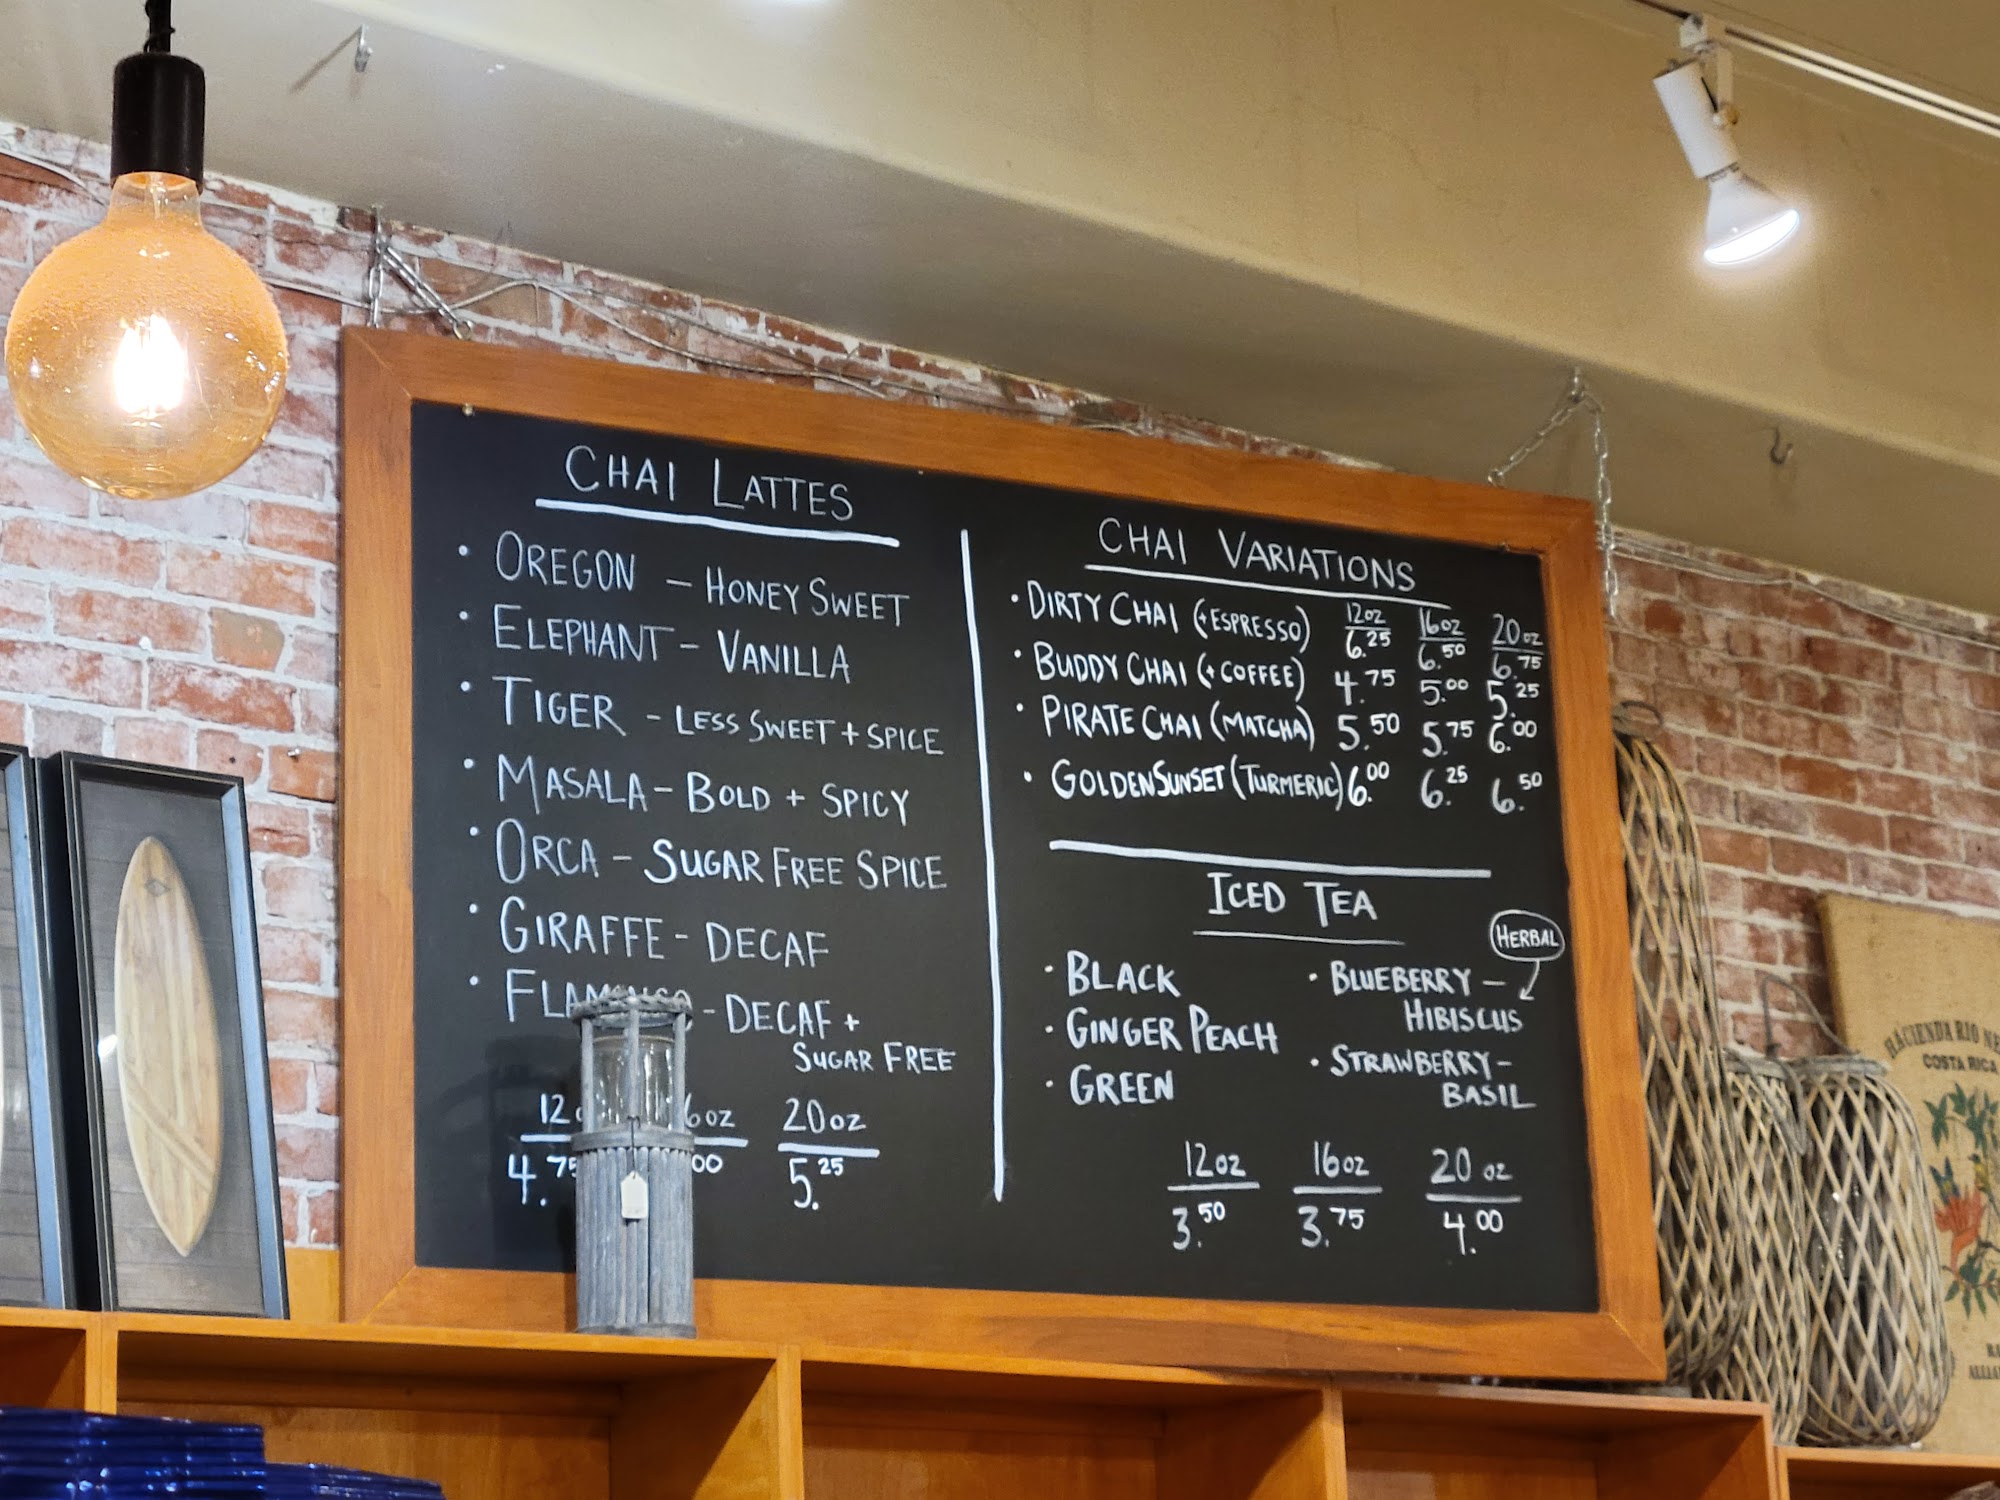 CHAI LATTES
• OREGON – HONEY SWEET
• ELEPHANT – VANILLA
• TIGER – LESS SWEET + SPICE
• MASALA – BOLD + SPICY
• ORCA – SUGAR FREE SPICE
• GIRAFFE – DECAF
• FLAMINGO – DECAF +
SUGAR FREE
20oz
4.75 5.25
CHAI VARIATIONS
12oz 16oz 20oz
• DIRTY CHAI (+ESPRESSO) 6.25 6.50 6.75
• BUDDY CHAI (+COFFEE) 4.75 5.00 5.25
• PIRATE CHAI (MATCHA) 5.50 5.75 6.00
• GOLDEN SUNSET (TURMERIC) 6.00 6.25 6.50
ICED TEA
• BLACK
• GINGER PEACH
• GREEN
HERBAL
• BLUEBERRY –
HIBISCUS
• STRAWBERRY –
BASIL
12oz 16oz 20 oz
3.50 3.75 4.00
HACIENDA RIO
COSTA RICA